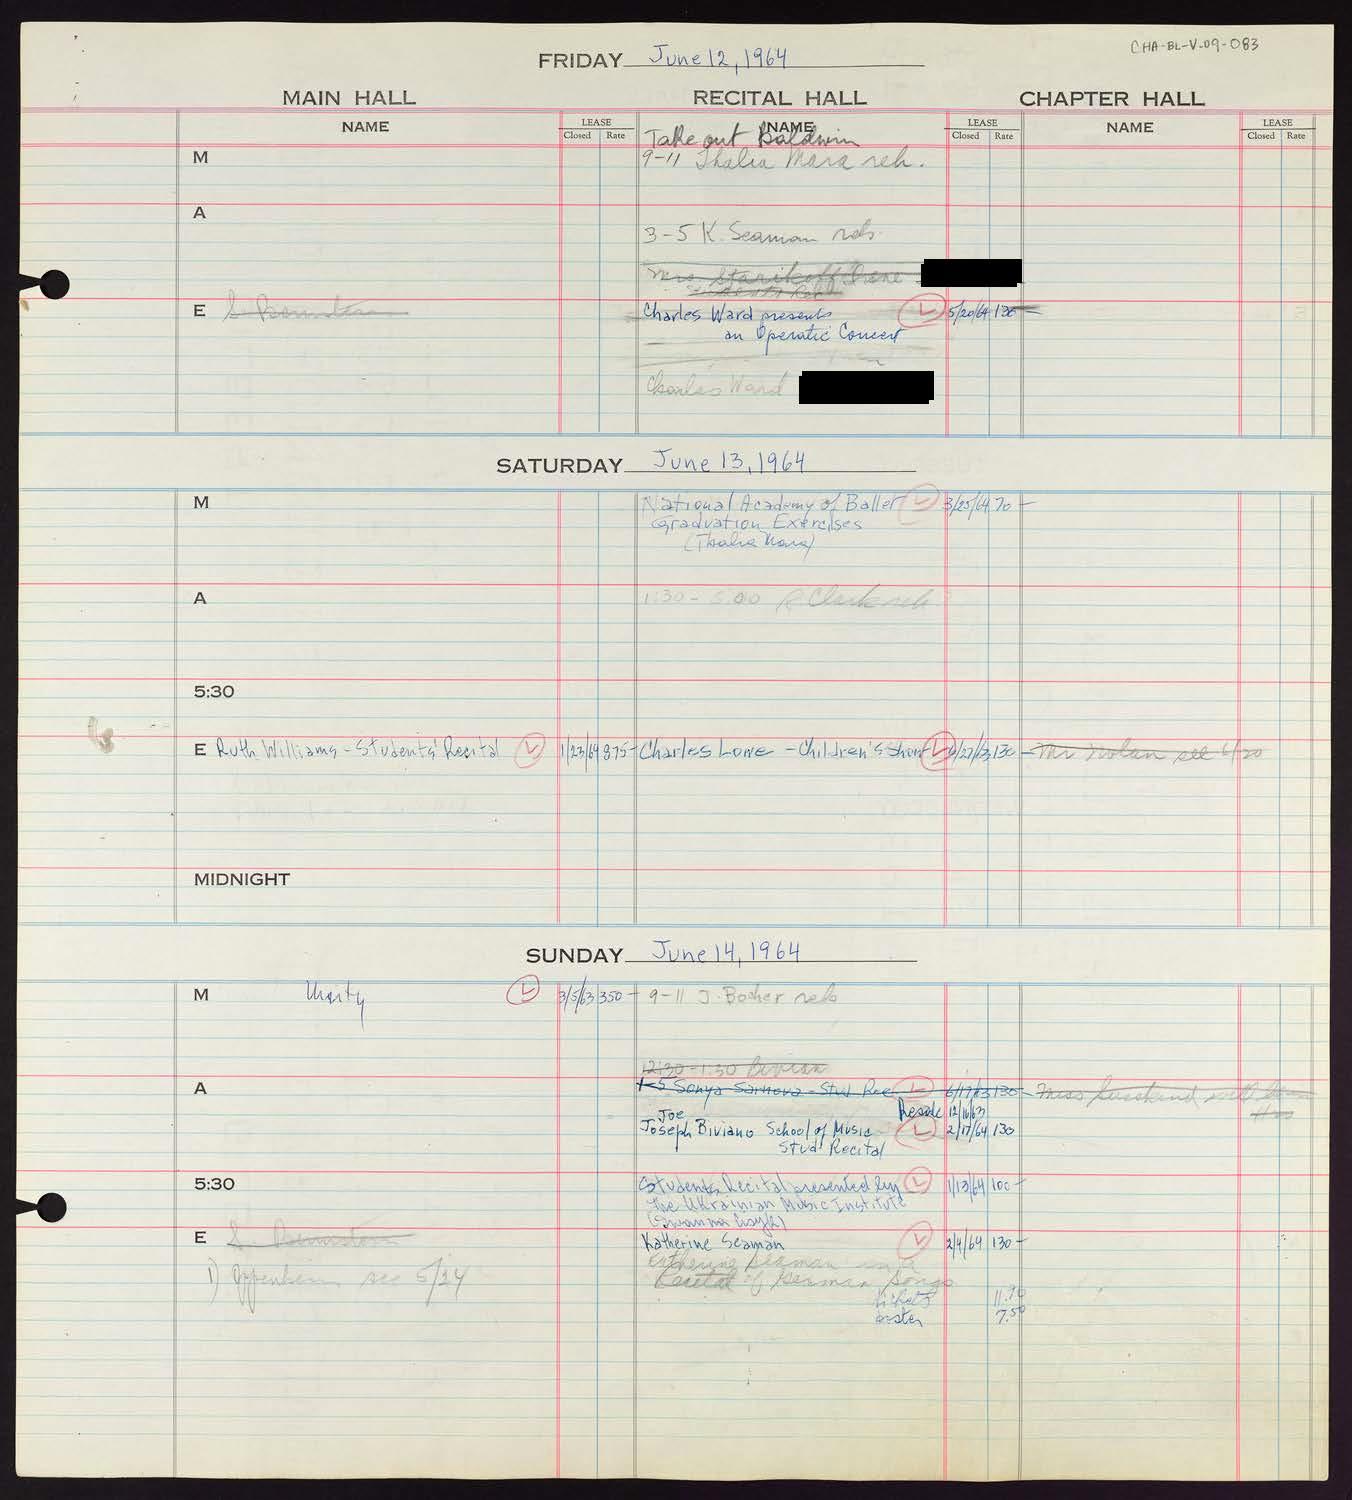 CHA-BL-V-09-083
FRIDAY June 12, 1964
MAIN HALL RECITAL HALL CHAPTER HALL
NAME LEASE Closed Rate NAME LEASE Closed Rate NAME LEASE Closed Rate
Take out Baldwin
M 9-11 Thalia Mara reh.
A
3-5 K. Seaman reh.
Mrs. Starikoff Irene
Students
E S. Bernstein Charles Ward presents L 5/20/64 130 -
an Operatic Concert
Charles Ward
SATURDAY June 13, 1964
M National Academy of Ballet L 3/25/64 70 -
Graduation Exercises
(Thalia Mara)
A 1:30 - 5:00 R Clark reh
5:30
E Ruth Williams - Students' Recital L 1/23/64 875 - Charles Lowe - Children's Show L /27/63 130 - Mr Nolan see 6/20
MIDNIGHT
SUNDAY June 14, 1964
M Unity L 3/5/63 350 - 9-11 J. Bocher reh
12:30-1:30 Bivian
A 1-5 Sonya Sarnova - Stud Rec L 6/17/63 130 - Miss
Resale 12/16/63
Joe
Joseph Biviano School of Music L 2/17/64 130
Stud Recital
5:30 Students Recital presented by L 1/13/64 100 -
the Ukrainian Music Institute
E S. Bernstein Katherine Seaman L 2/4/64 130 -
Katherine Seaman in a
1) Oppenheim see 5/24 Recital of German Songs
tickets 11.70
poster 7.50